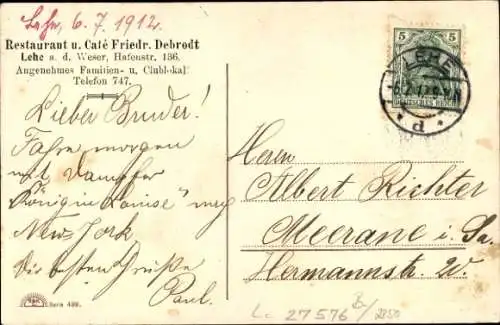 Lehe, 6.7.1912.
Restaurant u. Café Friedr. Debrodt
Lehe a. d. Weser, Hafenstr. 136.
Angenehmes Familien- u. Clublokal.
Telefon 747.
Lieber Bruder!
Fahre morgen
mit Dampfer
Königin Louise" weg
New-York
Die besten Grüße
Paul.
5 5
LEHE
DEUTSCHES REICH
* d *
Herrn
Albert Richter
Meerane i. Sa.
Hermannstr. 20.
L. 27576